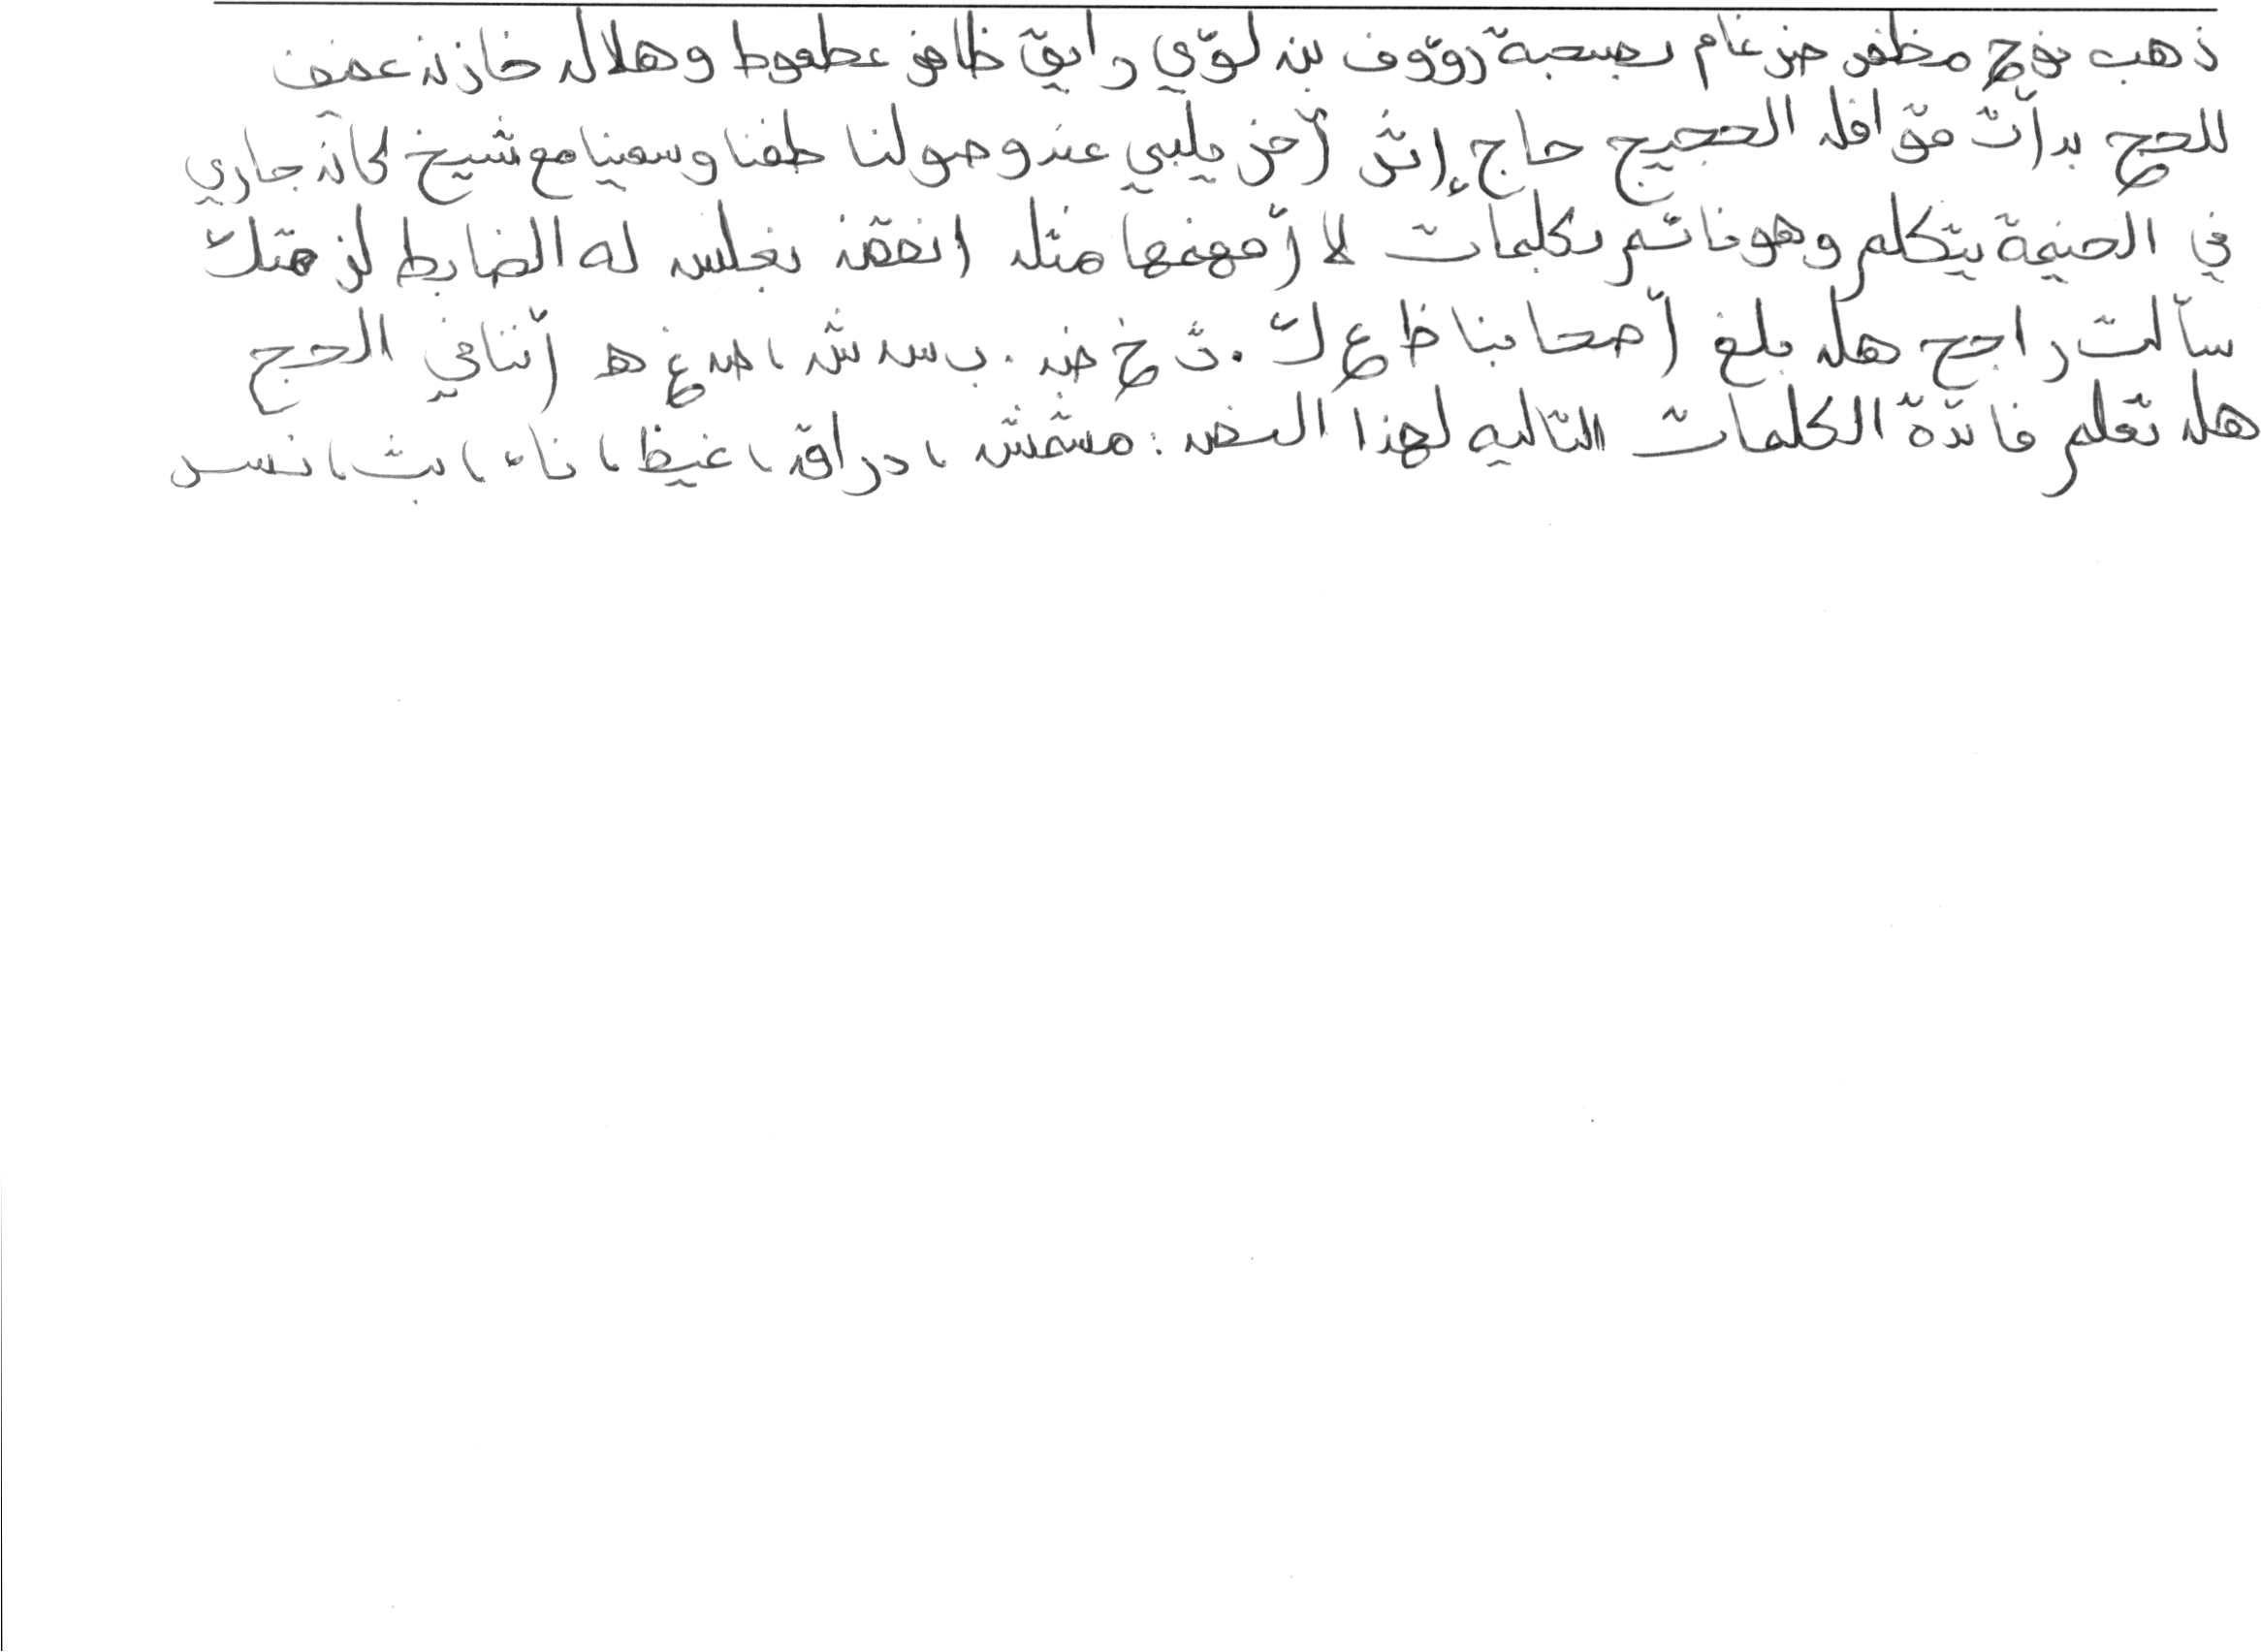 ذهب نوح مظفر ضرغام بصحبة رؤوف بن لؤي رائق ظافر عطعوط وهلال خازن عفيف
للحج بدأت قوافل الحجيج حاج إثر آخر يلبي عند وصولنا طفنا وسعينا مع شيخ كان جاري
في الخيمة يتكلم وهو نائم بكلمات لا أفهمها مثل انفض بغلس له الضابط لز هتك
سألت راجح هل بلغ أصحابنا ظ ع ك . ث خ ض . ب س ش ، ص غ ه أثناء الحج
هل تعلم فائدة الكلمات التاليه لهذا النص : مشمش ، دراق ، غيظ ، ناء ، بث ، نسر